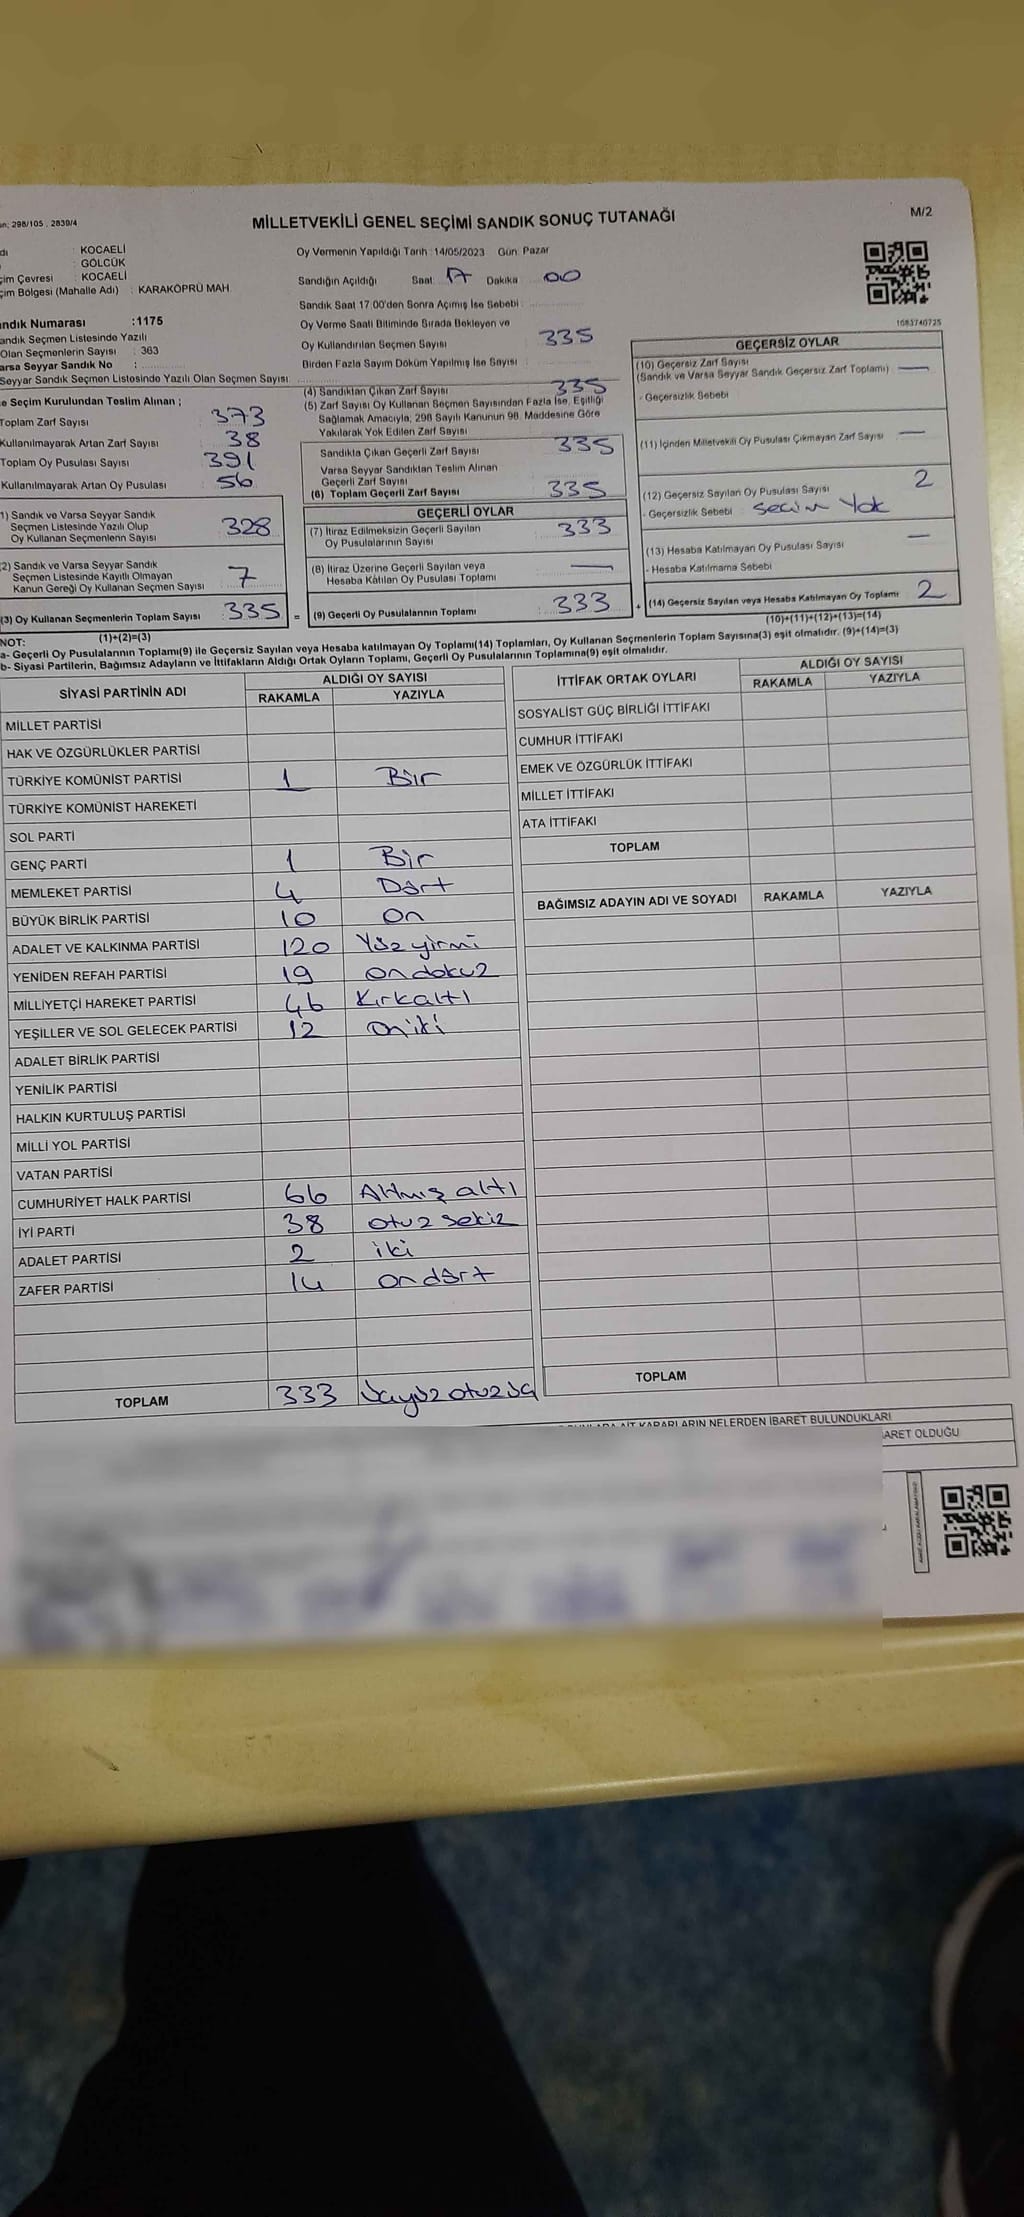 MİLLETVEKİLİ GENEL SEÇİMİ SANDIK SONUÇ TUTANAĞI
M/2
298/105 , 2839/4
KOCAELİ
GÖLCÜK
KOCAELİ
(Mahalle Adı) : KARAKÖPRÜ MAH.
Oy Vermenin Yapıldığı Tarih : 14/05/2023 Gün: Pazar
Sandığın Açıldığı Saat: 17 Dakika 00
Sandık Saat 17:00'den Sonra Açımış İse Sebebi :
Oy Verme Saati Bitiminde Sırada Bekleyen ve
Oy Kullandırılan Seçmen Sayısı 335
Birden Fazla Sayım Döküm Yapılmış İse Sayısı :
1083740725
Numarası :1175
Sandık Seçmen Listesinde Yazılı
Olan Seçmenlerin Sayısı : 363
Varsa Seyyar Sandık No :
Seyyar Sandık Seçmen Listesinde Yazılı Olan Seçmen Sayısı :
Seçim Kurulundan Teslim Alınan ;
Toplam Zarf Sayısı 373
Kullanılmayarak Artan Zarf Sayısı 38
Toplam Oy Pusulası Sayısı 391
Kullanılmayarak Artan Oy Pusulası 56
1) Sandık ve Varsa Seyyar Sandık
Seçmen Listesinde Yazılı Olup
Oy Kullanan Seçmenlerin Sayısı 328
2) Sandık ve Varsa Seyyar Sandık
Seçmen Listesinde Kayıtlı Olmayan
Kanun Gereği Oy Kullanan Seçmen Sayısı 7
(3) Oy Kullanan Seçmenlerin Toplam Sayısı 335 =
(1)+(2)=(3)
(4) Sandıktan Çıkan Zarf Sayısı 335
(5) Zarf Sayısı Oy Kullanan Seçmen Sayısından Fazla İse, Eşitliği
Sağlamak Amacıyla; 298 Sayılı Kanunun 98. Maddesine Göre
Yakılarak Yok Edilen Zarf Sayısı
Sandıkta Çıkan Geçerli Zarf Sayısı 335
Varsa Seyyar Sandıktan Teslim Alınan
Geçerli Zarf Sayısı
(6) Toplam Geçerli Zarf Sayısı 335
GEÇERLİ OYLAR
(7) İtiraz Edilmeksizin Geçerli Sayılan
Oy Pusulalarının Sayısı 333
(8) İtiraz Üzerine Geçerli Sayılan veya
Hesaba Katılan Oy Pusulası Toplamı —
(9) Geçerli Oy Pusulalarının Toplamı 333 +
GEÇERSİZ OYLAR
(10) Geçersiz Zarf Sayısı
(Sandık ve Varsa Seyyar Sandık Geçersiz Zarf Toplamı) —
- Geçersizlik Sebebi
(11) İçinden Milletvekili Oy Pusulası Çıkmayan Zarf Sayısı —
(12) Geçersiz Sayılan Oy Pusulası Sayısı 2
- Geçersizlik Sebebi : Seçim Yok
(13) Hesaba Katılmayan Oy Pusulası Sayısı —
- Hesaba Katılmama Sebebi
(14) Geçersiz Sayılan veya Hesaba Katılmayan Oy Toplamı 2
(10)+(11)+(12)+(13)=(14)
NOT:
a- Geçerli Oy Pusulalarının Toplamı(9) ile Geçersiz Sayılan veya Hesaba katılmayan Oy Toplamı(14) Toplamları, Oy Kullanan Seçmenlerin Toplam Sayısına(3) eşit olmalıdır. (9)+(14)=(3)
b- Siyasi Partilerin, Bağımsız Adayların ve İttifakların Aldığı Ortak Oyların Toplamı, Geçerli Oy Pusulalarının Toplamına(9) eşit olmalıdır.
SİYASİ PARTİNİN ADI
ALDIĞI OY SAYISI
RAKAMLA YAZIYLA
MİLLET PARTİSİ
HAK VE ÖZGÜRLÜKLER PARTİSİ
TÜRKİYE KOMÜNİST PARTİSİ 1 Bir
TÜRKİYE KOMÜNİST HAREKETİ
SOL PARTİ
GENÇ PARTİ 1 Bir
MEMLEKET PARTİSİ 4 Dört
BÜYÜK BİRLİK PARTİSİ 10 On
ADALET VE KALKINMA PARTİSİ 120 Yüzyirmi
YENİDEN REFAH PARTİSİ 19 ondokuz
MİLLİYETÇİ HAREKET PARTİSİ 46 Kırkaltı
YEŞİLLER VE SOL GELECEK PARTİSİ 12 oniki
ADALET BİRLİK PARTİSİ
YENİLİK PARTİSİ
HALKIN KURTULUŞ PARTİSİ
MİLLİ YOL PARTİSİ
VATAN PARTİSİ
CUMHURİYET HALK PARTİSİ 66 Altmış altı
İYİ PARTİ 38 otuz sekiz
ADALET PARTİSİ 2 iki
ZAFER PARTİSİ 14 on dört
TOPLAM 333
İTTİFAK ORTAK OYLARI
ALDIĞI OY SAYISI
RAKAMLA YAZIYLA
SOSYALİST GÜÇ BİRLİĞİ İTTİFAKI
CUMHUR İTTİFAKI
EMEK VE ÖZGÜRLÜK İTTİFAKI
MİLLET İTTİFAKI
ATA İTTİFAKI
TOPLAM
BAĞIMSIZ ADAYIN ADI VE SOYADI RAKAMLA YAZIYLA
TOPLAM
KARARLARIN NELERDEN İBARET BULUNDUKLARI
OLDUĞU